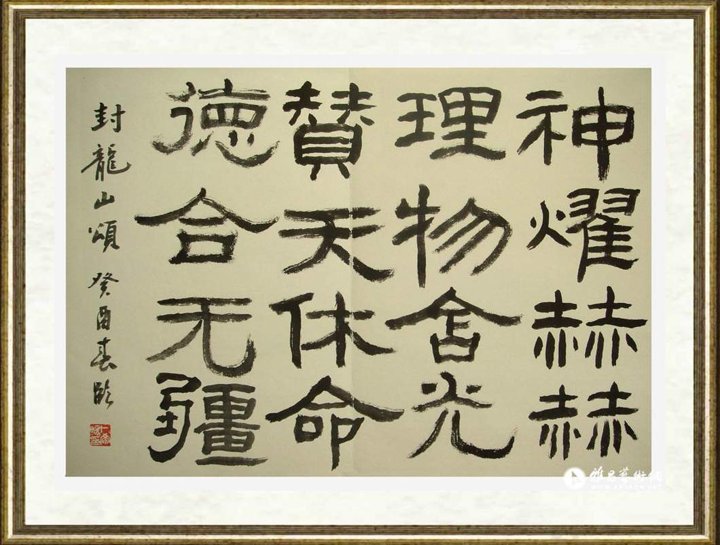 神燿赫赫
理物含光
賛天休命
徳合无疆
封龍山頌 癸酉春臨
雅昌藝術網